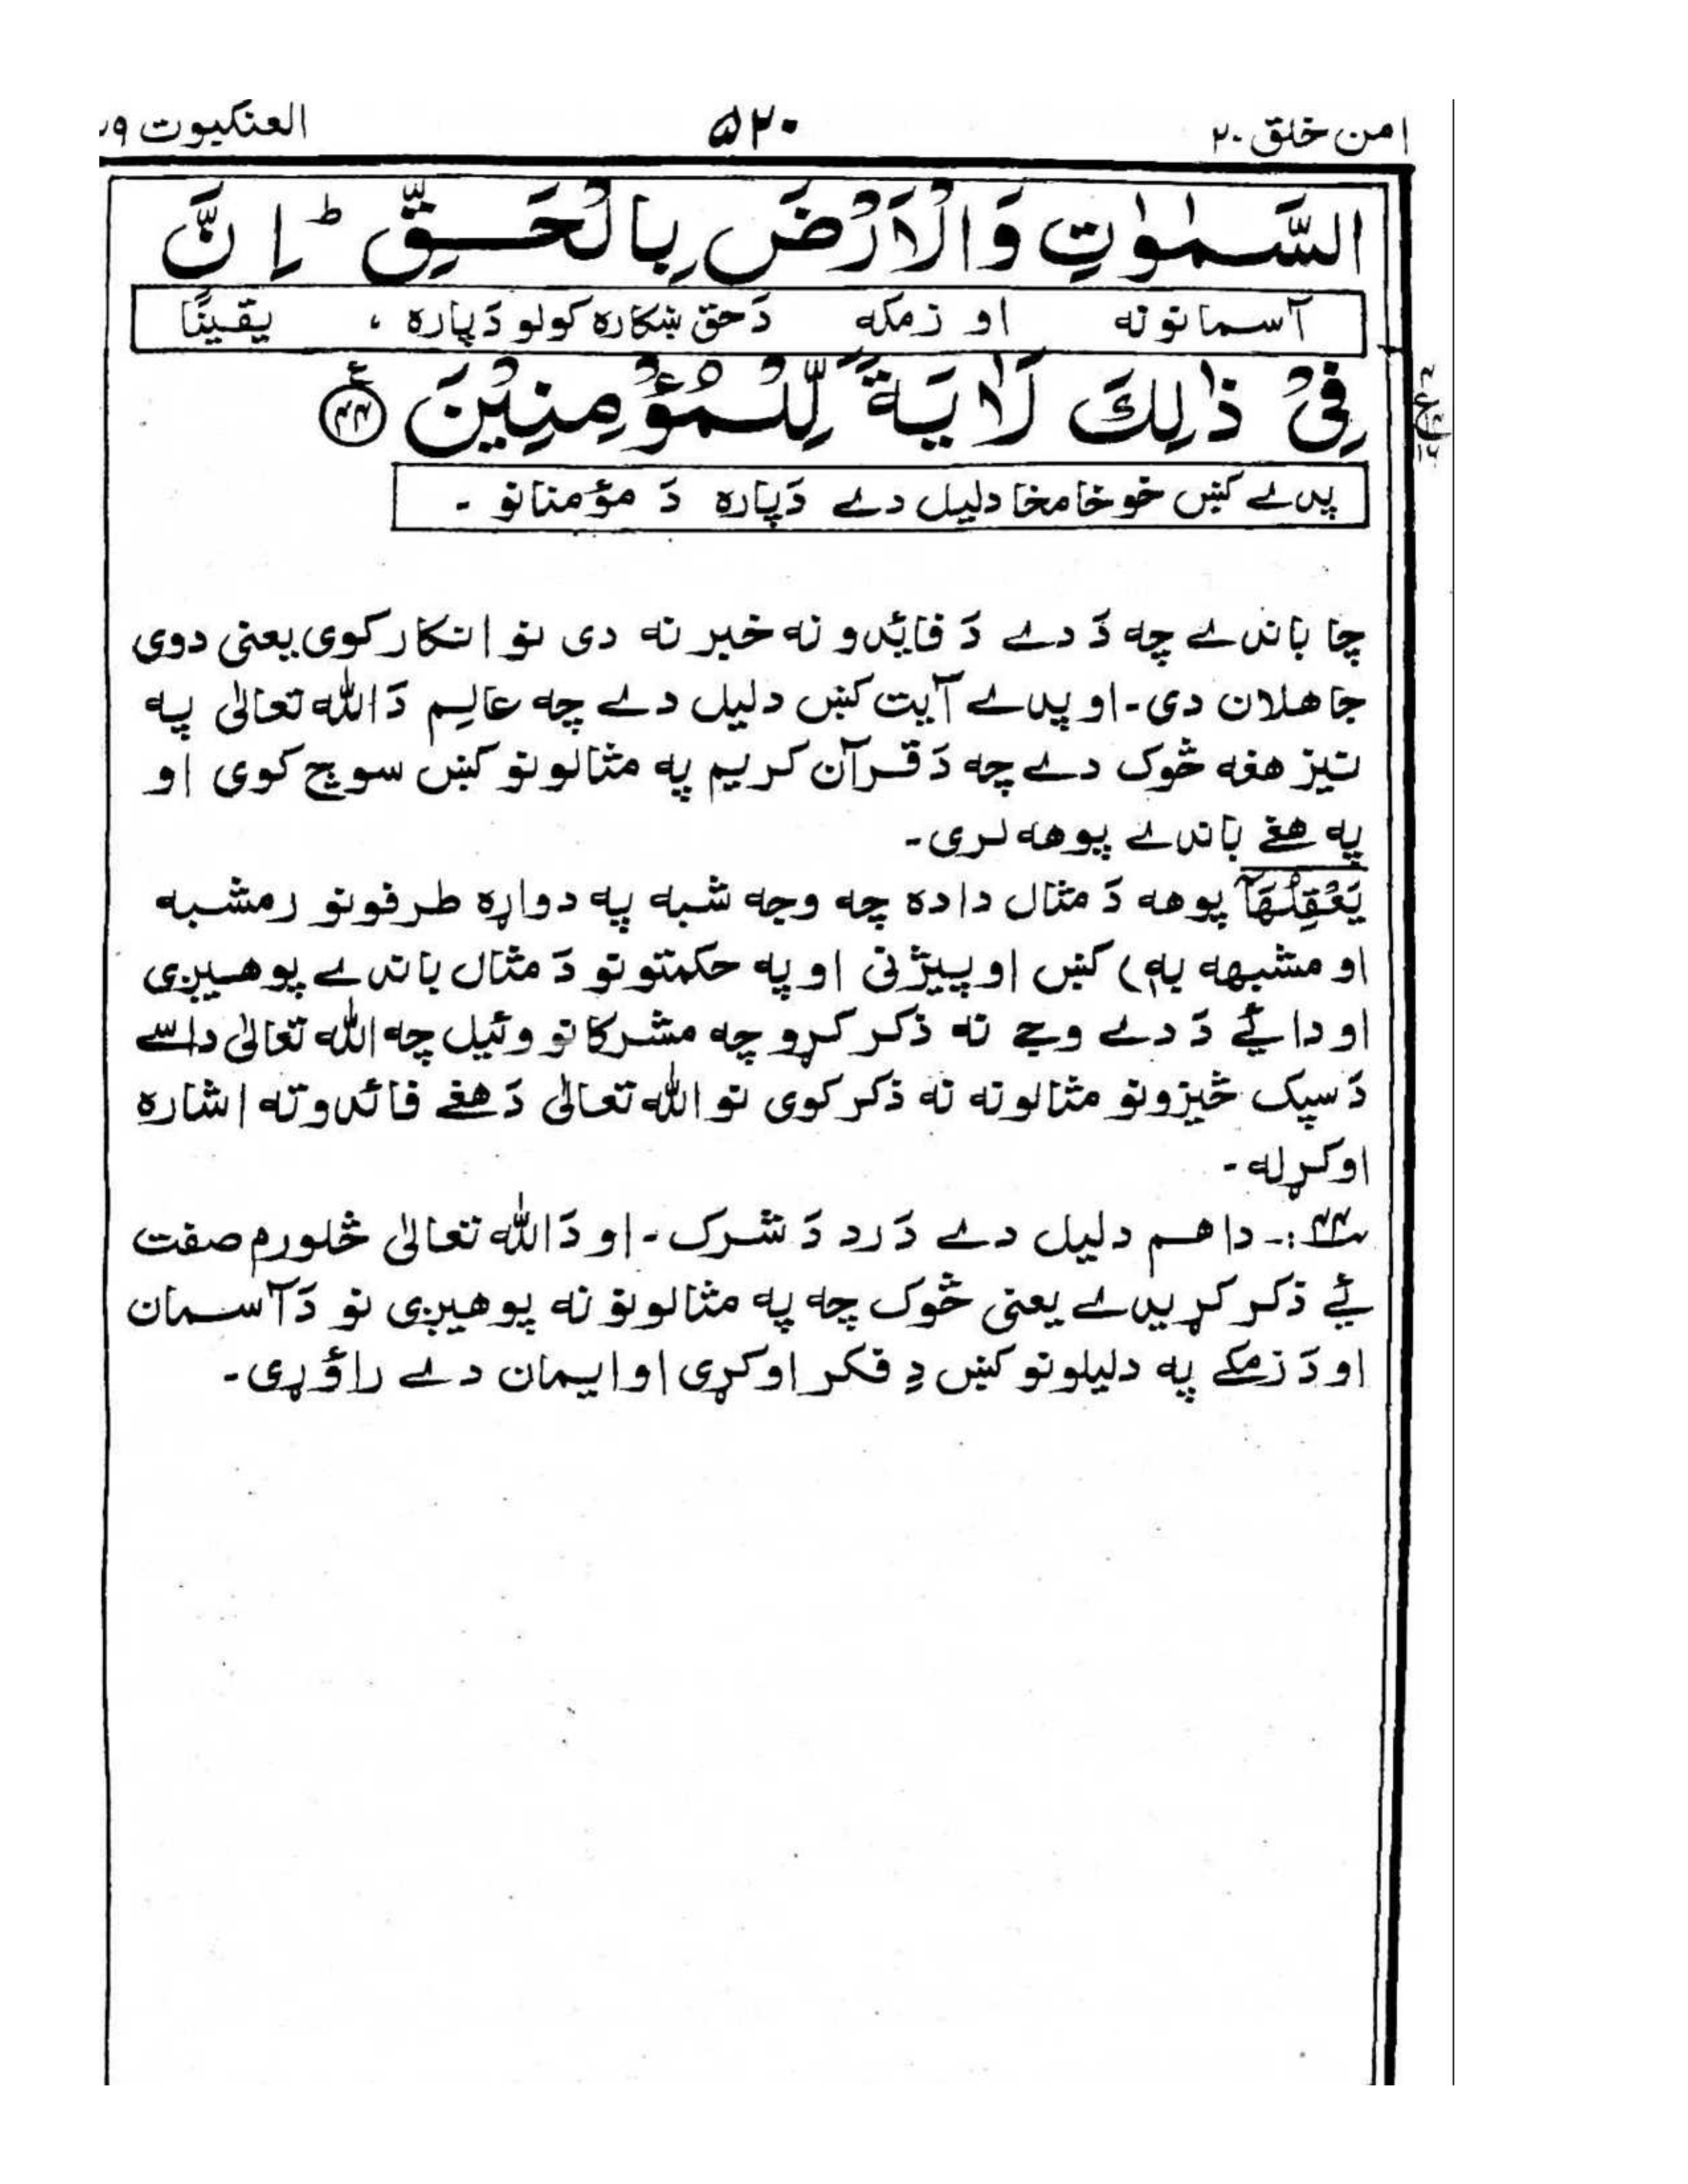 امن خلق ۲۰ ۵۲۰ العنکبوت ۲۹
السَّمٰوٰتِ وَالْاَرْضَ بِالْحَقِّ ؕ اِنَّ
آسمانونه او زمکه دَ حق ښکاره کولو دَپاره ، یقینًا
فِیْ ذٰلِكَ لَاٰیَةً لِّلْمُؤْمِنِیْنَ ﴿۴۴﴾ ع
پدے کښ خو خامخا دلیل دے دَپاره دَ مؤمنانو ۔
چا باندے چه دَ دے دَ فایٔدو نه خبر نه دی نو انکار کوی یعنی دوی
جاهلان دی۔ او پدے آیت کښ دلیل دے چه عالِم دَ الله تعالیٰ په
نیز هغه څوک دے چه دَ قرآن کریم په مثالونو کښ سوچ کوی او
په هغے باندے پوهه لری۔
یَعْقِلُهَآ پوهه دَ مثال داده چه وجه شبه په دواړه طرفونو (مشبه
او مشبهه به) کښ اوپیژنی او په حکمتونو دَ مثال باندے پوهیږی
او دائے دَ دے وجے نه ذکر کړو چه مشرکانو وئیل چه الله تعالیٰ داسے
دَ سپک څیزونو مثالونه نه ذکر کوی نو الله تعالیٰ دَ هغے فائدو ته اشاره
اوکړله۔
۴۴:۔ دا هم دلیل دے دَ رد دَ شرک۔ او دَ الله تعالیٰ څلورم صفت
ئے ذکر کړیدے یعنی څوک چه په مثالونو نه پوهیږی نو دَ آسمان
او دَ زمکے په دلیلونو کښ دِ فکر اوکړی او ایمان دے راؤړی۔